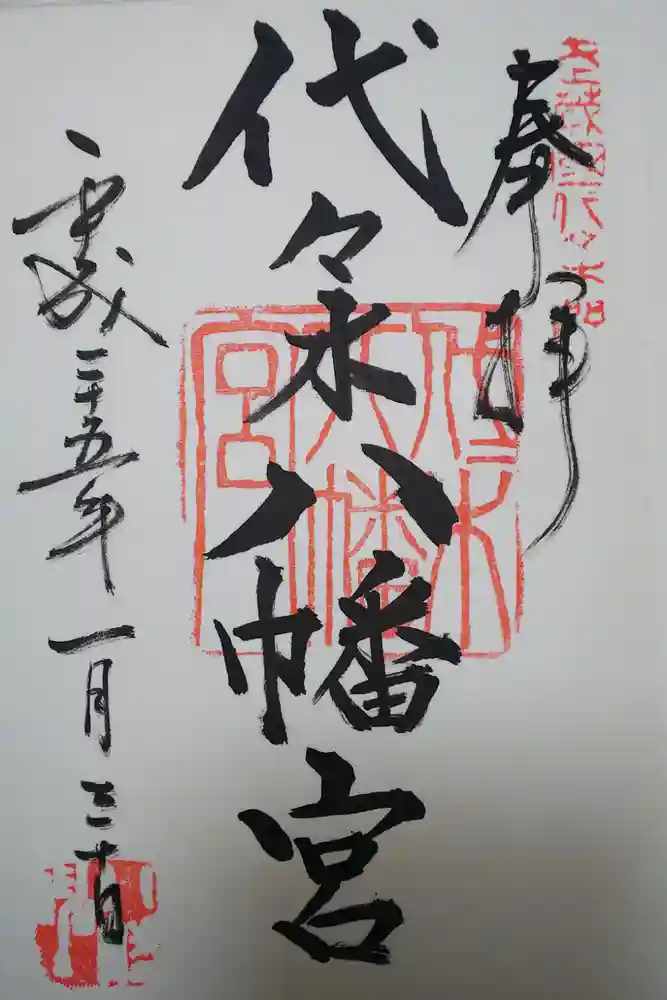 奉拝
代々木八幡宮
平成二十五年一月三十日
代々木八幡宮